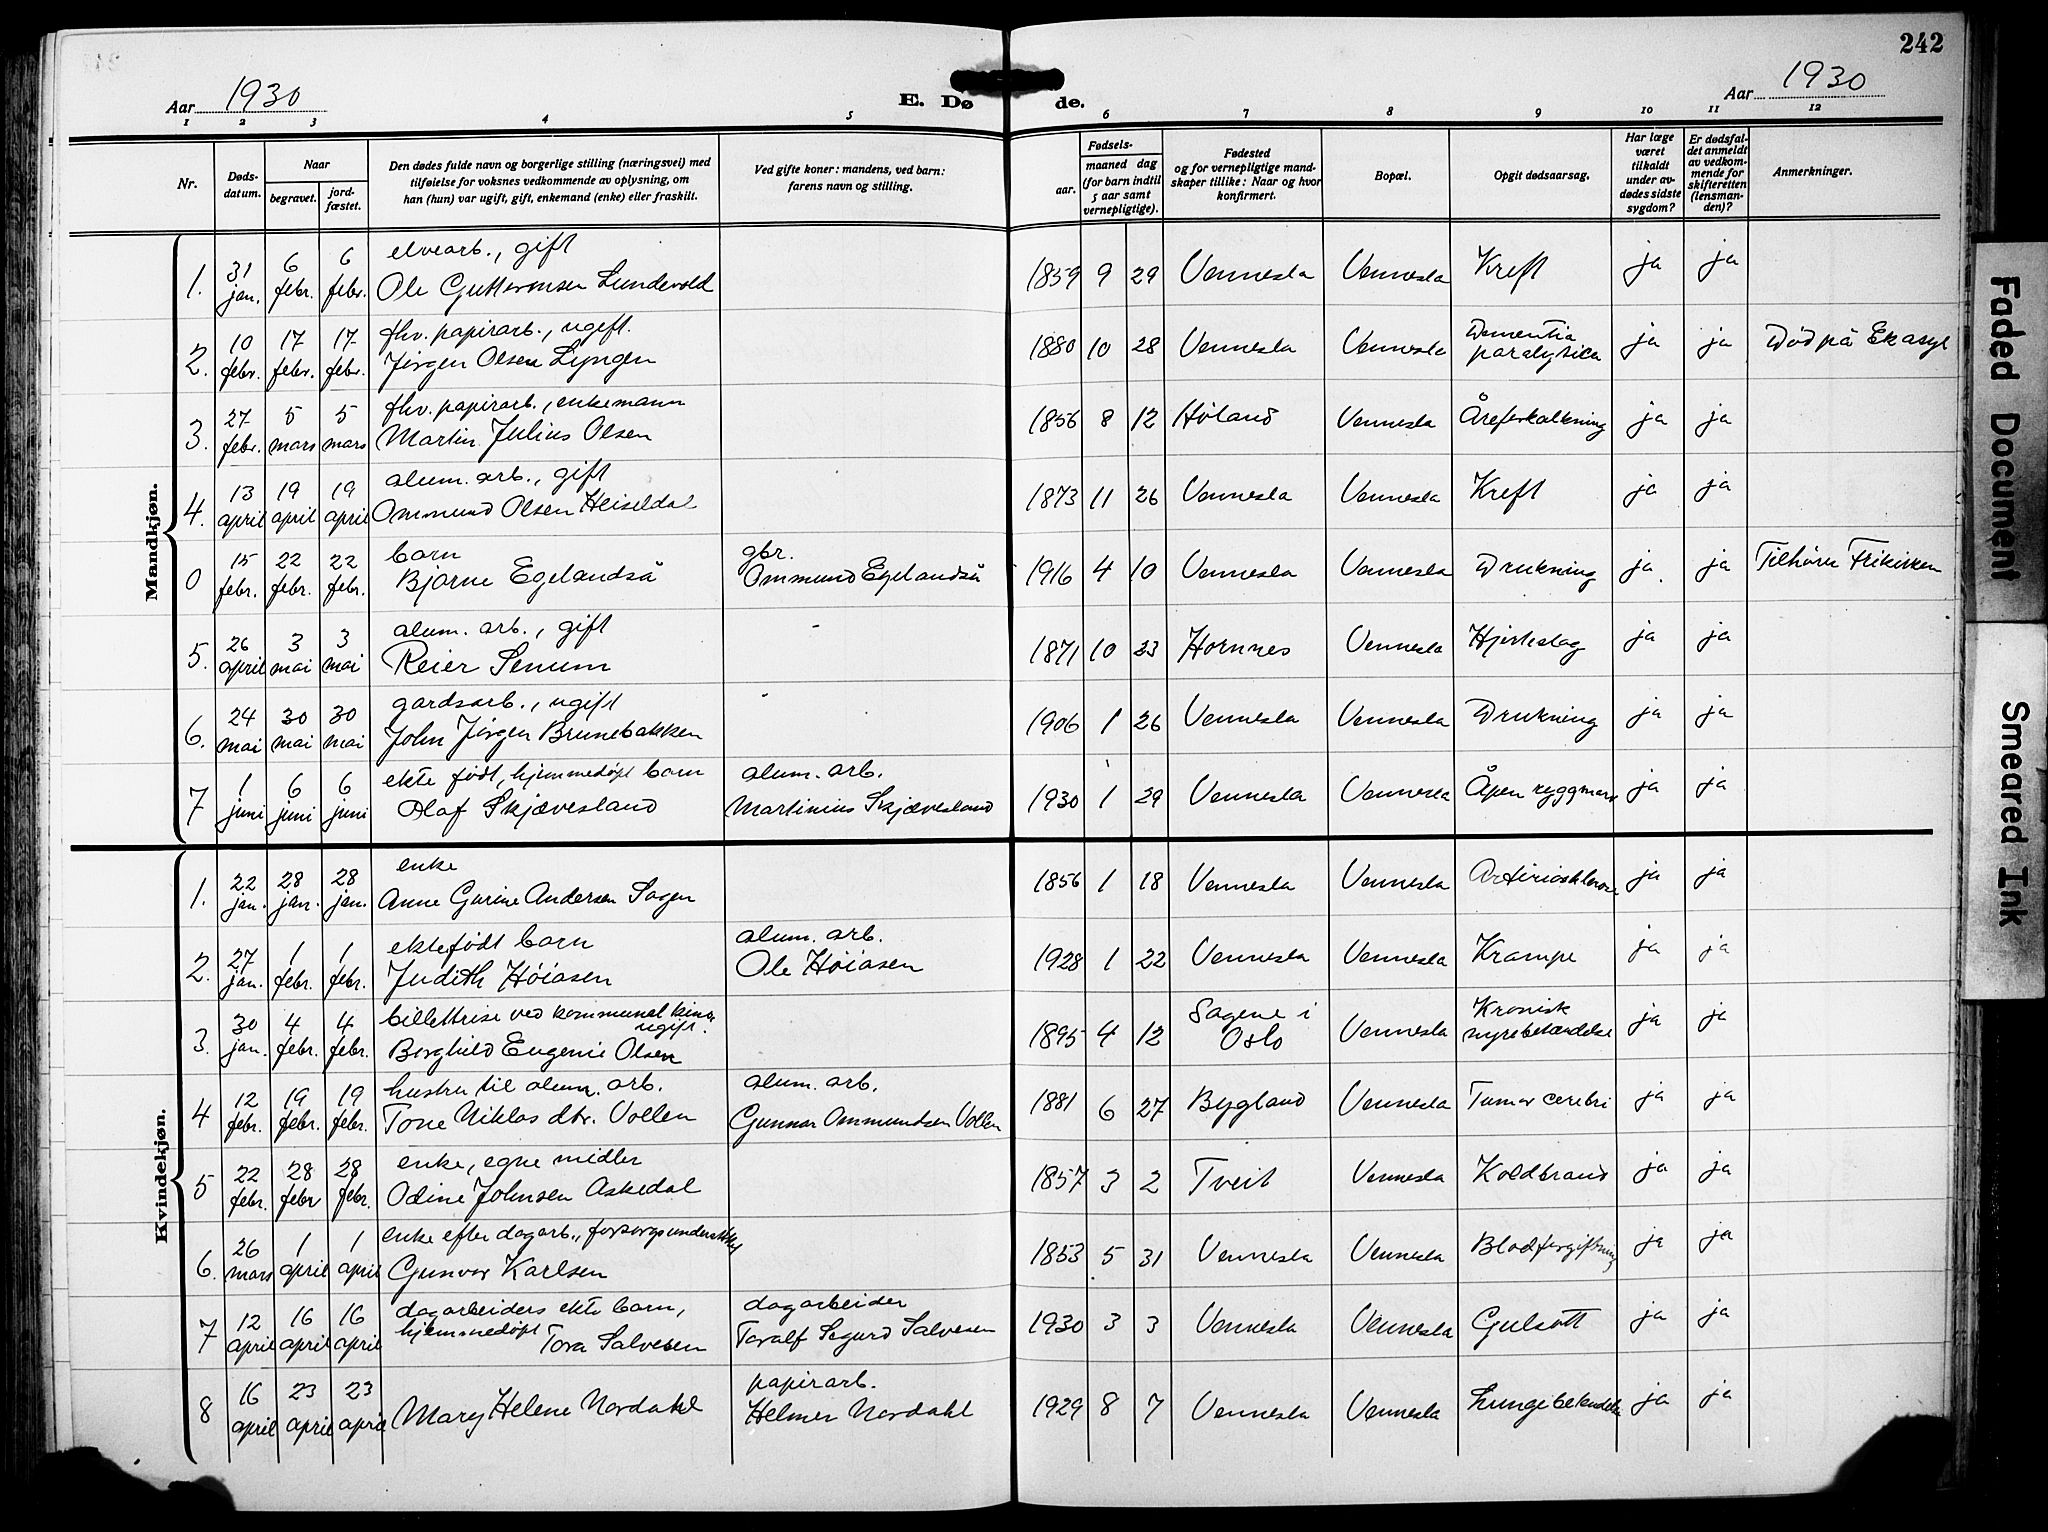 242
Aar 1930
E. Dø de.
Aar 1930
1 2 3 4 5 6 7 8 9 10 11 12
Nr.
Døds-
datum.
Naar
begravet.
jord-
fæstet.
Den dødes fulde navn og borgerlige stilling (næringsvei) med
tilføielse for voksnes vedkommende av oplysning, om
han (hun) var ugift, gift, enkemand (enke) eller fraskilt.
Ved gifte koner: mandens, ved barn:
farens navn og stilling.
Fødsels-
aar.
maaned dag
(for barn indtil
5 aar samt
vernepligtige).
Fødested
og for vernepligtige mand-
skaper tillike: Naar og hvor
konfirmert.
Bopæl.
Opgit dødsaarsag.
Har læge
været
tilkaldt
under av-
dødes sidste
sygdom?
Er dødsfal-
det anmeldt
av vedkom-
mende for
skifteretten
(lensman-
den)?
Anmerkninger.
Mandkjøn.
1. 31 jan. 6 febr. 6 febr. elvearb., gift
Ole Guttormsen Lundevold 1859 9 29 Vennesla Vennesla Kreft ja ja
2. 10 febr. 17 febr. 17 febr. fhv. papirarb., ugift.
Jørgen Olsen Lyngen 1880 10 28 Vennesla Vennesla Dementia paralytica ja ja Død på Ekasyl
3. 27 febr. 5 mars 5 mars fhv. papirarb., enkemann
Martin Julius Olsen 1856 8 12 Høland Vennesla Åreforkalkning ja ja
4. 13 april 19 april 19 april alum. arb., gift
Ommund Olsen Heiseldal 1873 11 26 Vennesla Vennesla Kreft ja ja
0 15 febr. 22 febr. 22 febr. barn gbr.
Bjarne Egelandså Ommund Egelandså 1916 4 10 Vennesla Vennesla Drukning ja ja Tilhører Frikirken
5. 26 april 3 mai 3 mai alum. arb., gift
Reier Senum 1871 10 23 Hornnes Vennesla Hjerteslag ja ja
6. 24 mai 30 mai 30 mai gardsarb., ugift
John Jørgen Brunebakken 1906 1 26 Vennesla Vennesla Drukning ja ja
7 1 juni 6 juni 6 juni ekte født, hjemmedøpt barn alum. arb.
Olaf Skjævesland Martinius Skjævesland 1930 1 29 Vennesla Vennesla Åpen ryggmarv ja ja
Kvindekjøn.
1. 22 jan. 28 jan. 28 jan. enke
Anne Gurine Andersen Sagen 1856 1 18 Vennesla Vennesla Arteriosklerose ja ja
2. 27 jan. 1 febr. 1 febr. ektefødt barn alum. arb.
Judith Höiåsen Ole Höiåsen 1928 1 22 Vennesla Vennesla Krampe ja ja
3. 30 jan. 4 febr. 4 febr. billettrise ved kommunal kino
ugift.
Borghild Eugenie Olsen 1895 4 12 Sagene i Oslo Vennesla Kronisk nyrebetændelse ja ja
4 12 febr. 19 febr. 19 febr. hustru til alum. arb. alum. arb.
Tone Niklas dtr. Vollen Gunnar Ommundsen Vollen 1881 6 27 Bygland Vennesla Tumor cerebri ja ja
5 22 febr. 28 febr 28 febr. enke, egne midler
Odine Johnsen Askedal 1857 3 2 Tveit Vennesla Koldbrand ja ja
6. 26 mars 1 april 1 april enke efter dagarb., forsorgsunderstøttet
Gunvor Karlsen 1853 5 31 Vennesla Vennesla Blodforgiftning ja ja
7 12 april 16 april 16 april dagarbeiders ekte barn, dagarbeider
hjemmedøpt Tora Salvesen Toralf Sigurd Salvesen 1930 3 3 Vennesla Vennesla Gulsott ja ja
8 16 april 23 april 23 april papirarb.
Mary Helene Nordahl Helmer Nordahl 1929 8 7 Vennesla Vennesla Lungebetendelse ja ja
Faded Document
Smeared Ink